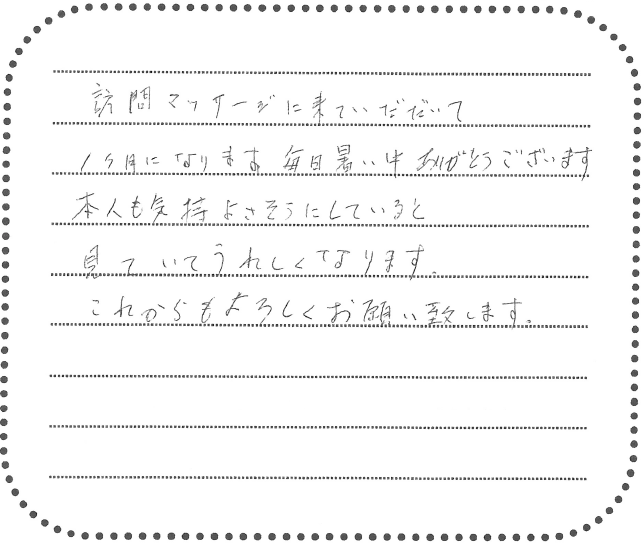 訪問マッサージに来ていただいて
1ヶ月になります。毎日暑い中ありがとうございます
本人も気持よさそうにしていると
見ていてうれしくなります。
これからもよろしくお願い致します。